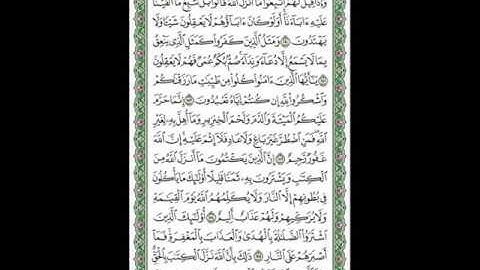 وَإِذَا قِيلَ لَهُمُ ٱتَّبِعُوا۟ مَآ أَنزَلَ ٱللَّهُ قَالُوا۟ بَلْ نَتَّبِعُ مَآ أَلْفَيْنَا
عَلَيْهِ ءَابَآءَنَآ أَوَلَوْ كَانَ ءَابَآؤُهُمْ لَا يَعْقِلُونَ شَيْـًٔا وَلَا
يَهْتَدُونَ ١٧٠ وَمَثَلُ ٱلَّذِينَ كَفَرُوا۟ كَمَثَلِ ٱلَّذِى يَنْعِقُ
بِمَا لَا يَسْمَعُ إِلَّا دُعَآءً وَنِدَآءً صُمٌّۢ بُكْمٌ عُمْىٌ فَهُمْ لَا يَعْقِلُونَ
١٧١ يَـٰٓأَيُّهَا ٱلَّذِينَ ءَامَنُوا۟ كُلُوا۟ مِن طَيِّبَـٰتِ مَا رَزَقْنَـٰكُمْ
وَٱشْكُرُوا۟ لِلَّهِ إِن كُنتُمْ إِيَّاهُ تَعْبُدُونَ ١٧٢ إِنَّمَا حَرَّمَ
عَلَيْكُمُ ٱلْمَيْتَةَ وَٱلدَّمَ وَلَحْمَ ٱلْخِنزِيرِ وَمَآ أُهِلَّ بِهِۦ لِغَيْرِ
ٱللَّهِ فَمَنِ ٱضْطُرَّ غَيْرَ بَاغٍ وَلَا عَادٍ فَلَآ إِثْمَ عَلَيْهِ إِنَّ ٱللَّهَ
غَفُورٌ رَّحِيمٌ ١٧٣ إِنَّ ٱلَّذِينَ يَكْتُمُونَ مَآ أَنزَلَ ٱللَّهُ مِنَ
ٱلْكِتَـٰبِ وَيَشْتَرُونَ بِهِۦ ثَمَنًا قَلِيلًا أُو۟لَـٰٓئِكَ مَا يَأْكُلُونَ فِى
بُطُونِهِمْ إِلَّا ٱلنَّارَ وَلَا يُكَلِّمُهُمُ ٱللَّهُ يَوْمَ ٱلْقِيَـٰمَةِ
وَلَا يُزَكِّيهِمْ وَلَهُمْ عَذَابٌ أَلِيمٌ ١٧٤ أُو۟لَـٰٓئِكَ ٱلَّذِينَ
ٱشْتَرَوُا۟ ٱلضَّلَـٰلَةَ بِٱلْهُدَىٰ وَٱلْعَذَابَ بِٱلْمَغْفِرَةِ فَمَآ
أَصْبَرَهُمْ عَلَى ٱلنَّارِ ١٧٥ ذَٰلِكَ بِأَنَّ ٱللَّهَ نَزَّلَ ٱلْكِتَـٰبَ بِٱلْحَقِّ